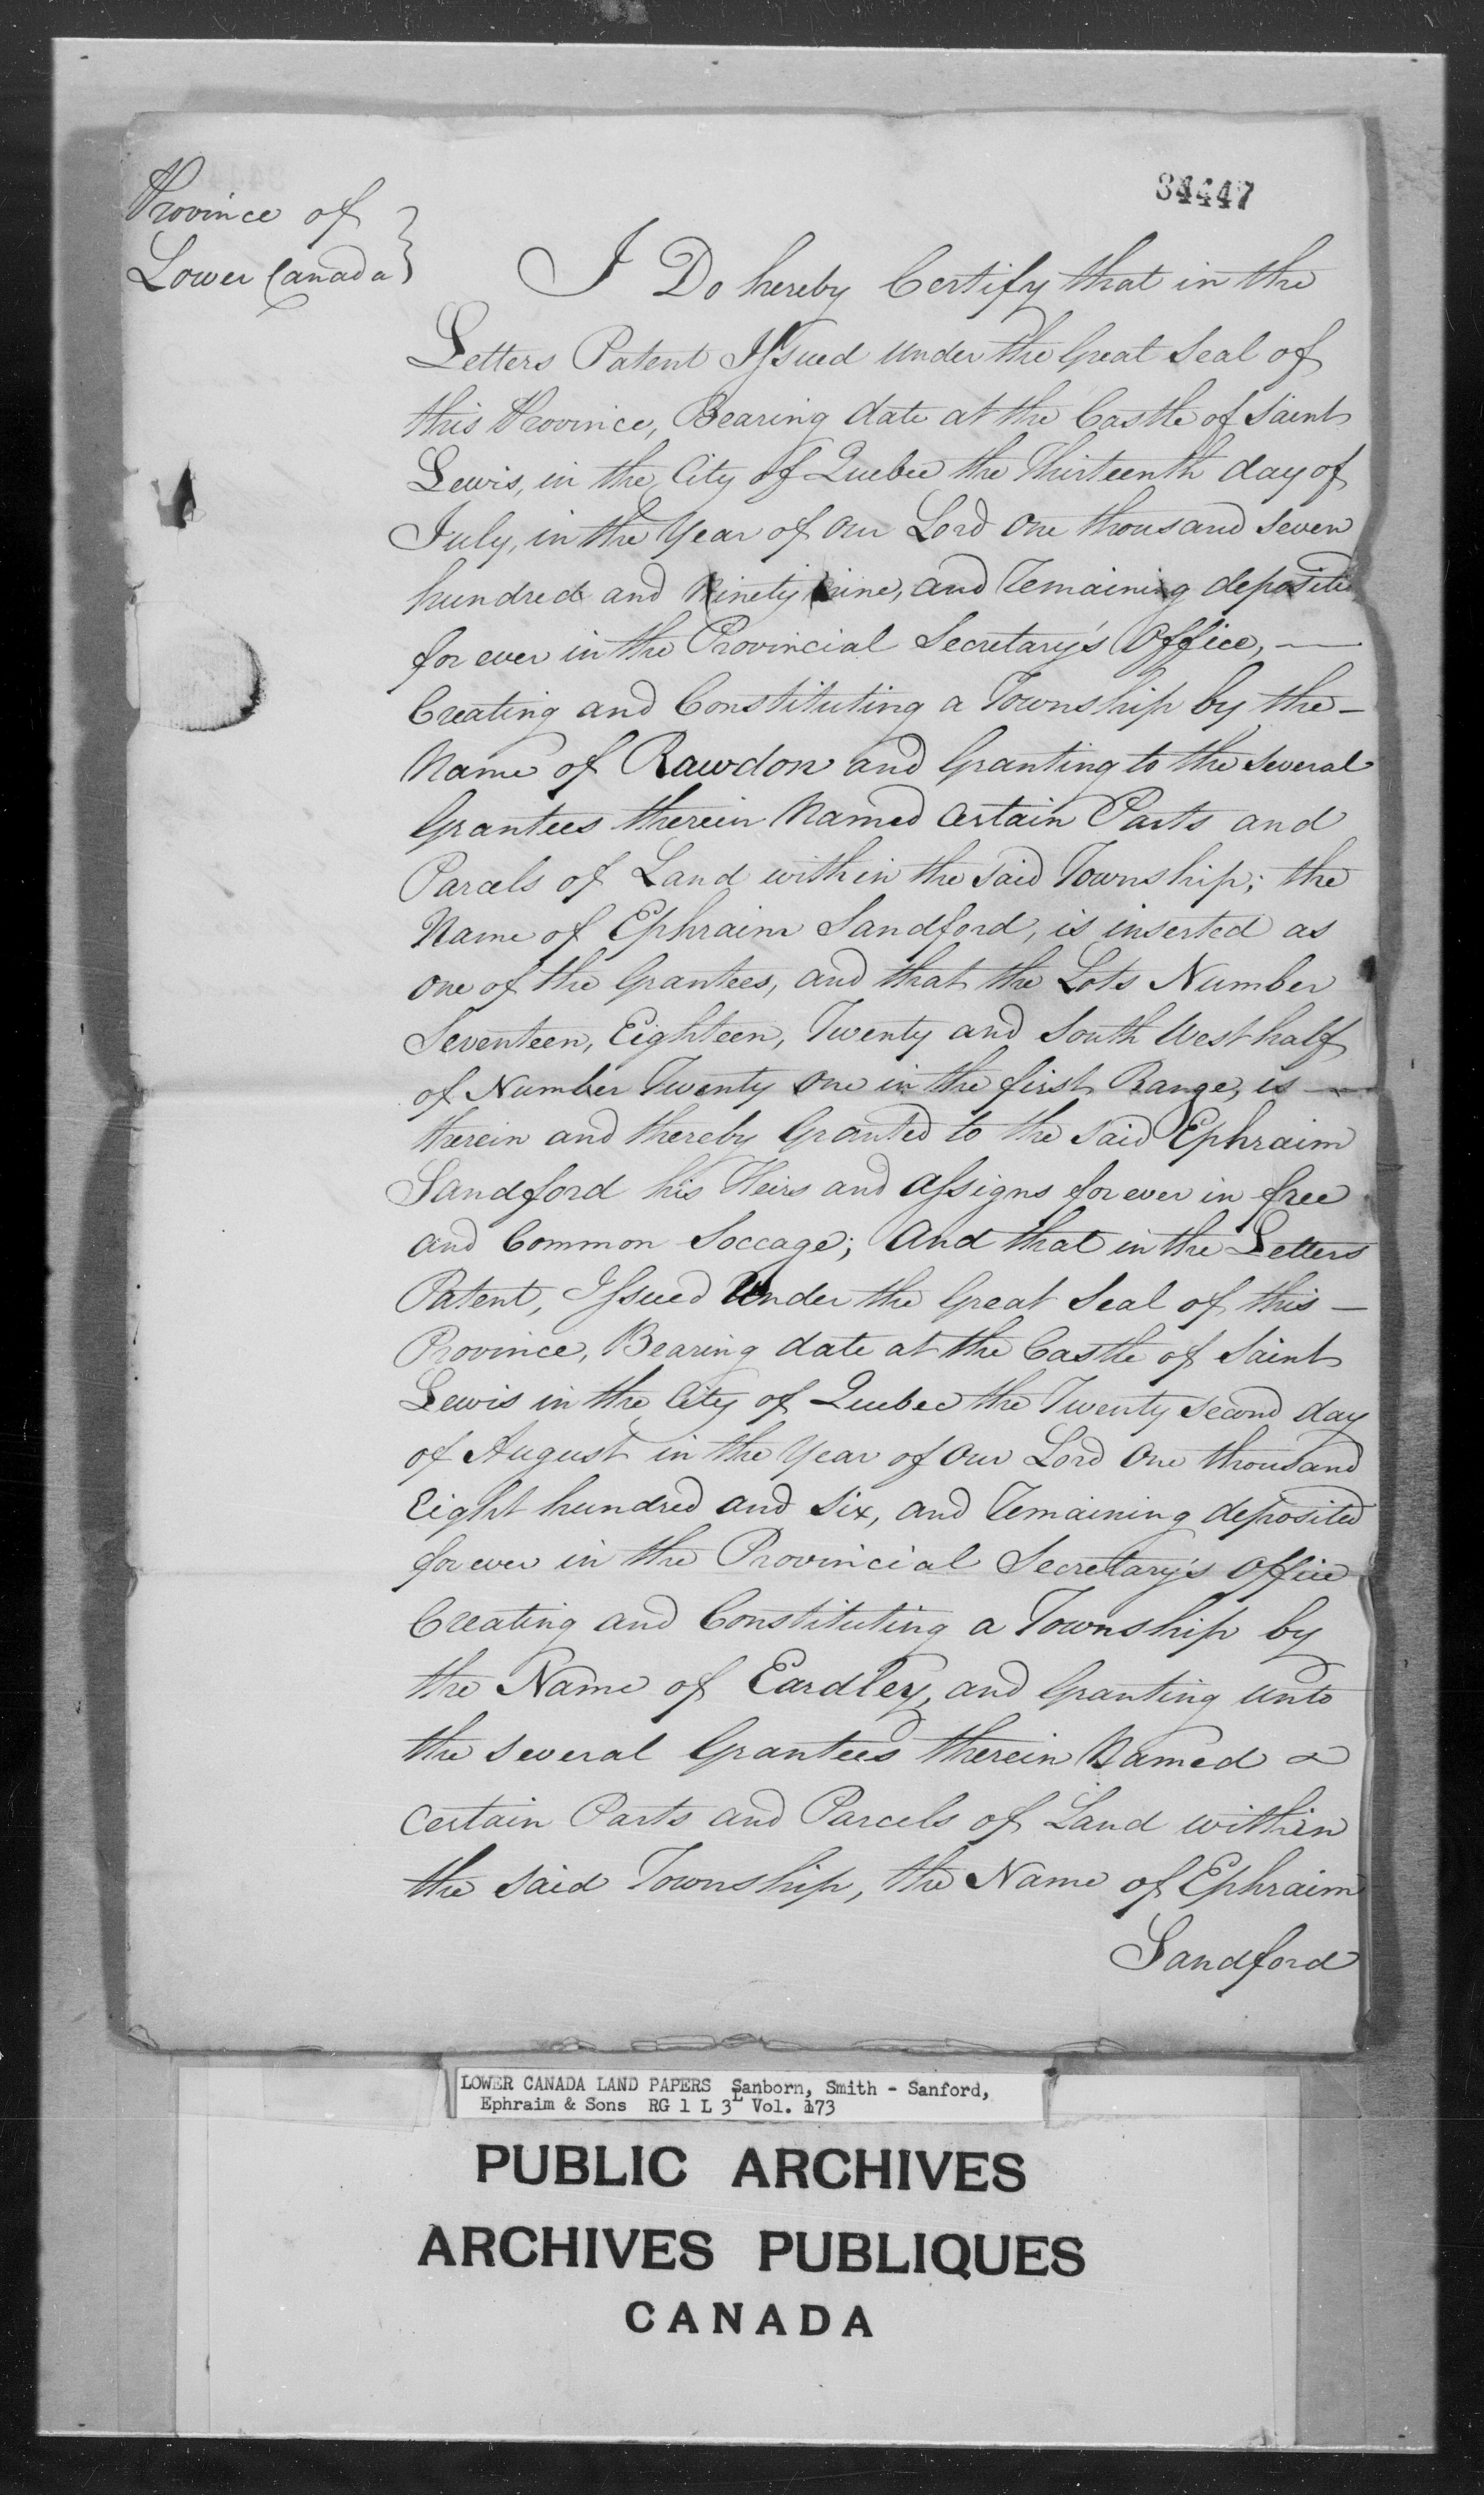 84447
Province of
Lower Canada }
I Do hereby Certify that in the
Letters Patent Issued under the Great Seal of
this Province, Bearing date at the Castle of Saint
Lewis, in the City of Quebec the Thirteenth day of
July, in the Year of Our Lord One thousand seven
hundred and Ninety nine, and remaining deposited
for ever in the Provincial Secretary's Office, —
Creating and Constituting a Township by the —
Name of Rawdon and Granting to the several
Grantees therein Named Certain Parts and
Parcels of Land within the said Township; the
Name of Ephraim Sandford, is inserted as
one of the Grantees, and that the Lots Number
Seventeen, Eighteen, Twenty and South West half
of Number Twenty One in the first Range, is —
therein and thereby Granted to the said Ephraim
Sandford his Heirs and Assigns for ever in free
and Common Soccage; And that in the Letters
Patent, Issued Under the Great Seal of this —
Province, Bearing date at the Castle of Saint
Lewis in the City of Quebec the Twenty second day
of August in the Year of Our Lord One thousand
Eight hundred and Six, and remaining deposited
for ever in the Provincial Secretary's Office
Creating and Constituting a Township by
the Name of Eardley, and Granting unto
the several Grantees therein Named
Certain Parts and Parcels of Land within
the said Township, the Name of Ephraim
Sandford
LOWER CANADA LAND PAPERS Sanborn, Smith - Sanford,
Ephraim & Sons RG 1 L 3L Vol. 173
PUBLIC ARCHIVES
ARCHIVES PUBLIQUES
CANADA